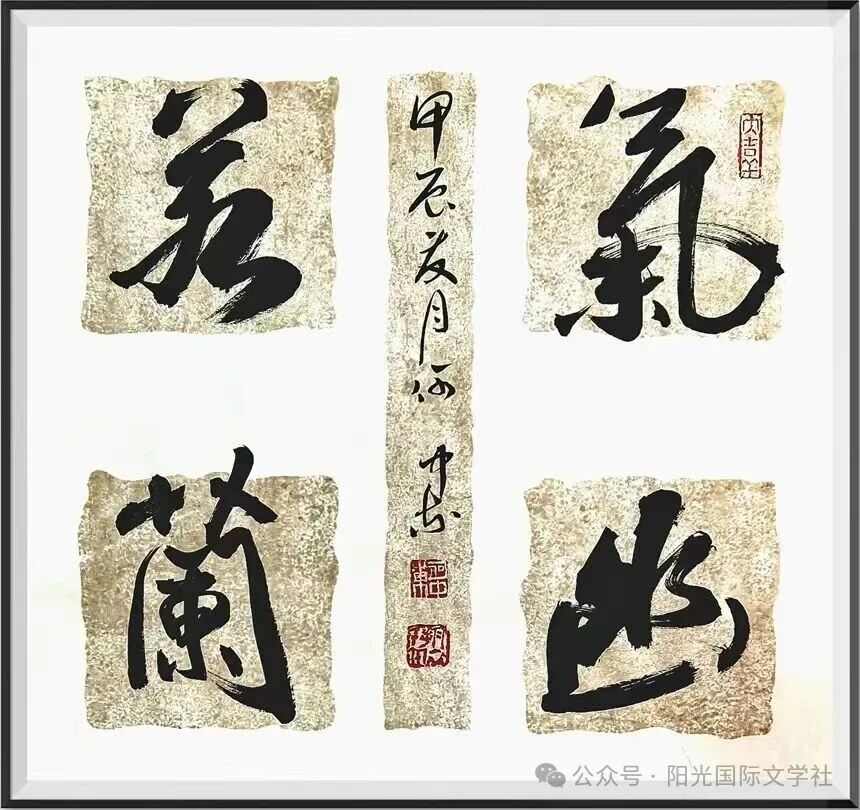 氣若
幽蘭
甲辰夏月何
公众号 · 阳光国际文学社